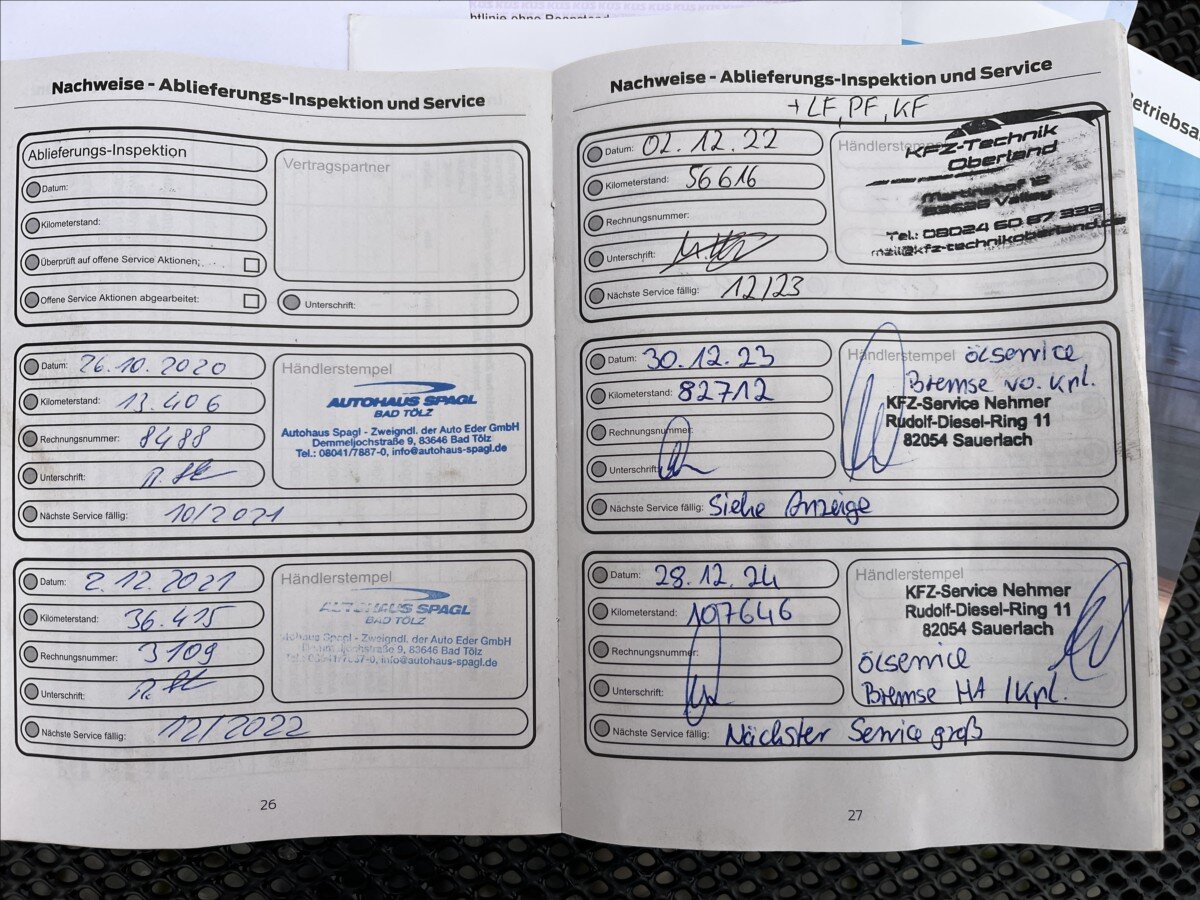 htlinie ohne Beanstand
Betriebsa
Nachweise - Ablieferungs-Inspektion und Service
Ablieferungs-Inspektion
Datum:
Kilometerstand:
Überprüft auf offene Service Aktionen:
Offene Service Aktionen abgearbeitet:
Vertragspartner
Unterschrift:
Datum: 26.10.2020
Kilometerstand: 13.406
Rechnungsnummer: 8488
Unterschrift:
Nächste Service fällig: 10/2021
Händlerstempel
AUTOHAUS SPAGL
BAD TÖLZ
Autohaus Spagl - Zweigndl. der Auto Eder GmbH
Demmeljochstraße 9, 83646 Bad Tölz
Tel.: 08041/7887-0, info@autohaus-spagl.de
Datum: 2.12.2021
Kilometerstand: 36.415
Rechnungsnummer: 3109
Unterschrift:
Nächste Service fällig: 12/2022
Händlerstempel
AUTOHAUS SPAGL
BAD TÖLZ
Autohaus Spagl - Zweigndl. der Auto Eder GmbH
Demmeljochstraße 9, 83646 Bad Tölz
Tel.: 08041/7887-0, info@autohaus-spagl.de
26
Nachweise - Ablieferungs-Inspektion und Service
+LF, PF, KF
Datum: 02.12.22
Kilometerstand: 56616
Rechnungsnummer:
Unterschrift:
Nächste Service fällig: 12/23
Händlerstempel
KFZ-Technik
Oberland
Valley
Tel.: 08024 60 87 388
mail@kfz-technikoberland.de
Datum: 30.12.23
Kilometerstand: 82712
Rechnungsnummer:
Unterschrift:
Nächste Service fällig: Siehe Anzeige
Händlerstempel ölservice
Bremse vo. Kpl.
KFZ-Service Nehmer
Rudolf-Diesel-Ring 11
82054 Sauerlach
Datum: 28.12.24
Kilometerstand: 107646
Rechnungsnummer:
Unterschrift:
Nächste Service fällig: Nächster Service groß
Händlerstempel
KFZ-Service Nehmer
Rudolf-Diesel-Ring 11
82054 Sauerlach
ölservice
Bremse HA /Kpl.
27